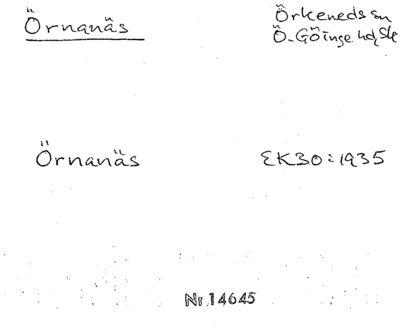 Örnanäs
Örkeneds sn
Ö. Göinge hd, Sk
Örnanäs
EK30:1935
Nr. 14645